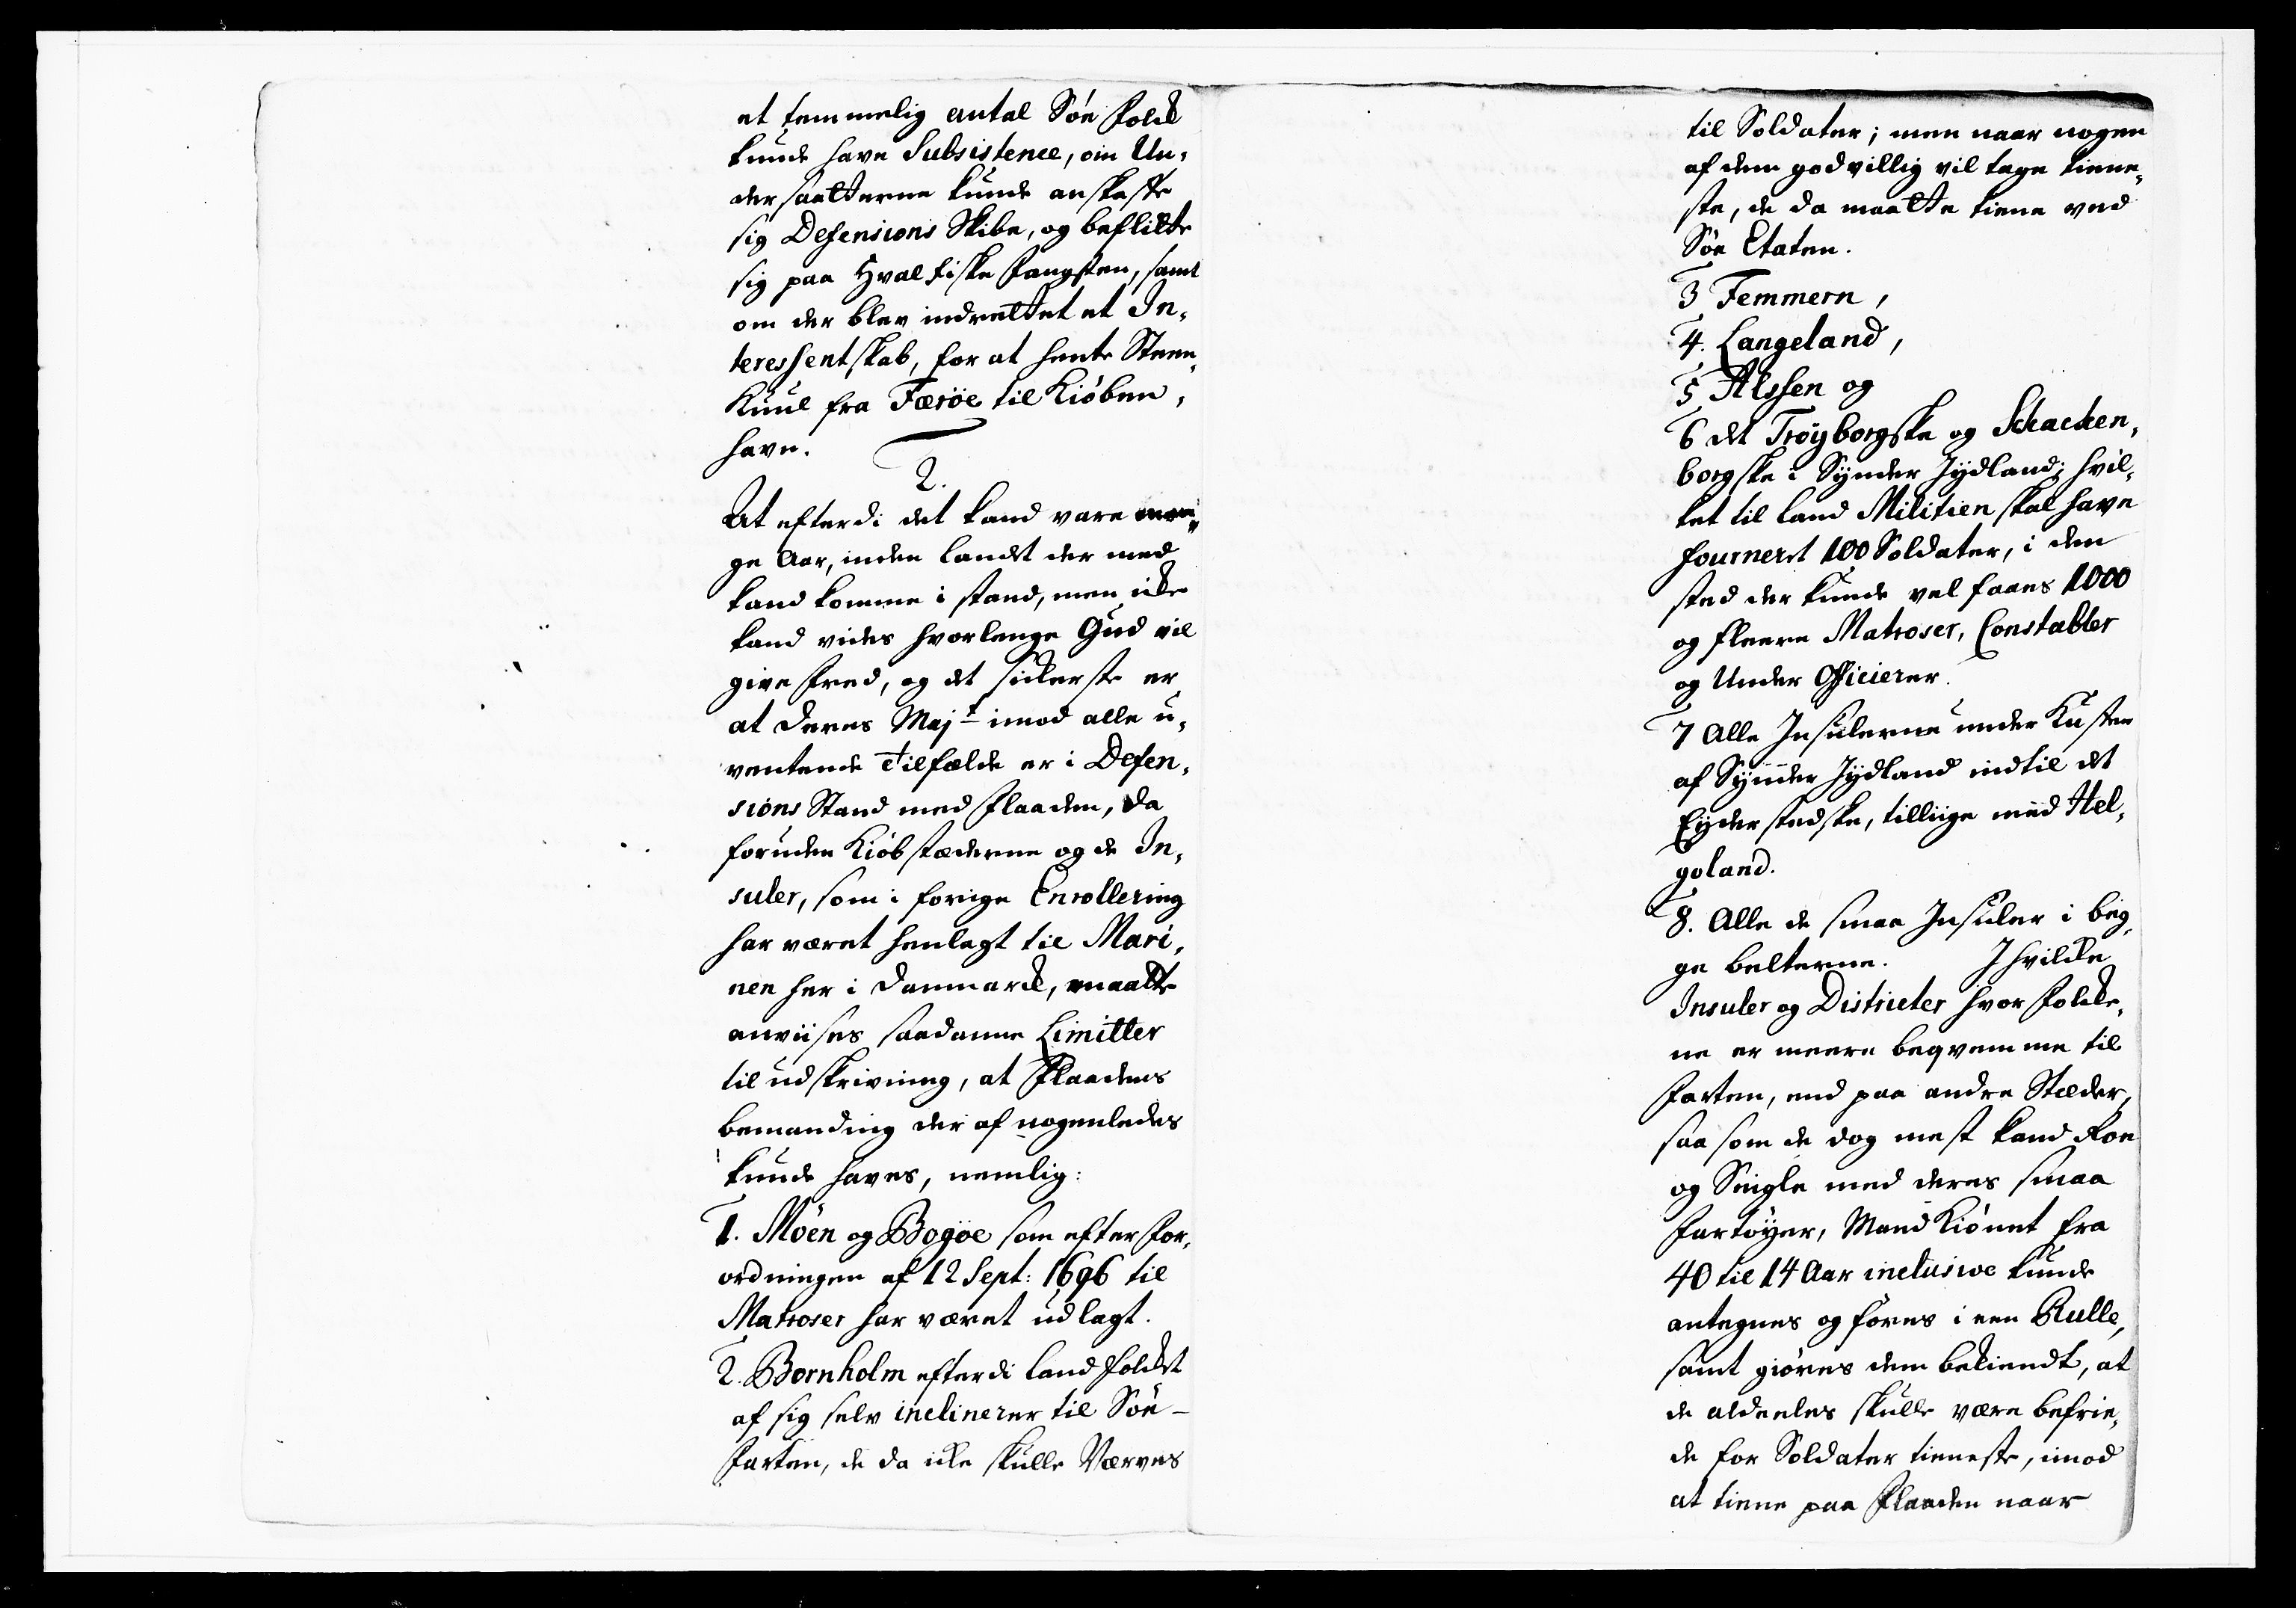 et temmelig antal Söe Folck
kunde have Subsistence, om Un,
dersaatterne kunde anskaffe
sig Defensions Skibe, og beflitte
sig paa Hvalfiske Fangsten, samt
om der blev indrettet et In,
teressentskab, for at hente Steen,
Kuul fra Færöe til Kiöben,
havn.
2.
At efterdi det kand vare man,
ge Aar, inden landet der med
kand komme i stand, men icke
kand vides hvorlenge Gud vil
give Fred, og det sickerste er
at Deres Majt imod alle u,
ventende Tilfælde er i Defen,
sions Stand med Flaaden, da
foruden Kiöbstæderne og de In,
suler, som i forige Enrollering
har været henlagt til Mari,
nen her i Danmarck, maatte
anviises saadanne Limitter
til udskrivning, at Flaadens
bemanding der af nogenledes
kunde haves, nemlig:
1. Möen og Bogöe som efter For,
ordningen af 12 Sept: 1696 til
Matroser har været udlagt.
2. Bornholm efterdi land Folcket
af sig selv inclinerer til Söe-
Farten, de da icke skulle Værves
til Soldater; men naar nogen
af dem godvillig vil tage tiene,
ste, de da maatte tiene ved
Söe Etaten.
3 Femmern,
4. Langeland,
5 Alssen og
6 det Tröyborgske og Schacken,
borgske i Synder Jydland; hvil,
ket til land Militien skal have
fourneret 100 Soldater, i den
sted der kunde vel faaes 1000
og fleere Matroser, Constabler
og Under Officierer.
7 Alle Insulerne under Kusten
af Synder Jydland indtil det
Eyderstedske, tilliige med Hel,
goland.
8. Alle de smaa Insuler i beg,
ge belterne. I hvilcke
Insuler og Districter hvor Folcke,
ne er meere beqvemme til
Farten, end paa andre Stæder,
saa som de dog mest kand Roe
og Seigle med deres smaa
Fartöyer, Mand Kiönnet fra
40 til 14 Aar inclusive kunde
antegnes og föres i een Rulle,
samt giöres dem bekiendt, at
de aldeeles skulle være befrie,
de for Soldater tieneste, imod
at tiene paa Flaaden naar